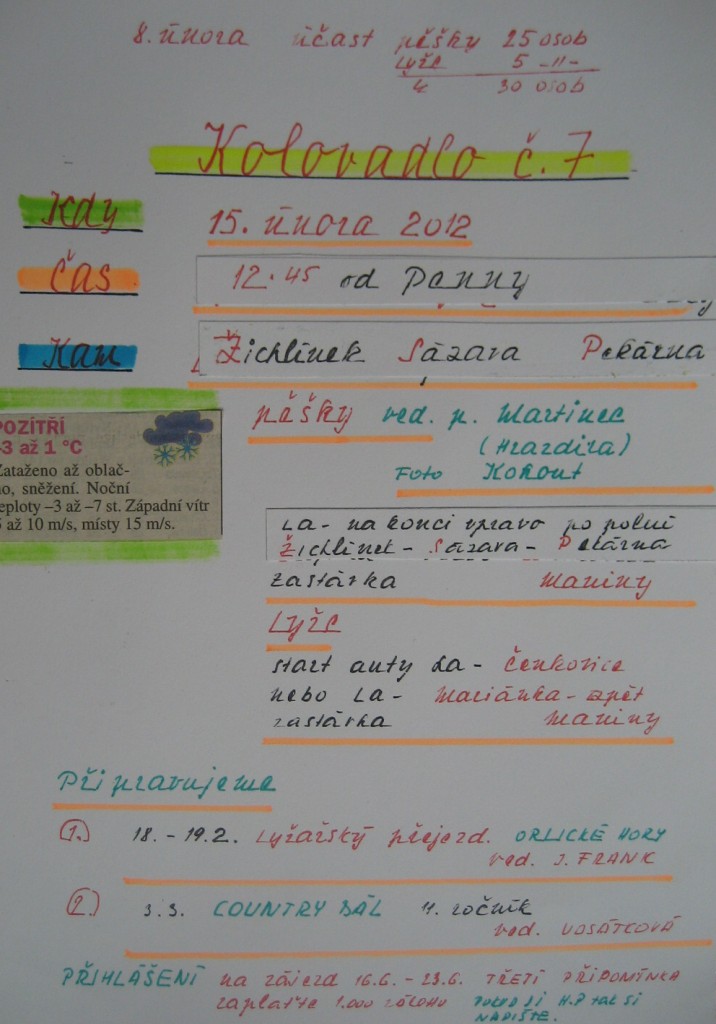 8. února účast pěšky 25 osob
Lyže 5 -11-
30 osob
Kolovadlo č. 7
Kdy 15. února 2012
Čas 12.45 od Penny
Kam Žichlínek Sázava Pekárna
POZÍTŘÍ
-3 až 1 °C
Zataženo až oblač-
no, sněžení. Noční
teploty –3 až –7 st. Západní vítr
až 10 m/s, místy 15 m/s.
pěšky ved. p. Martinec
(Hrazdira)
Foto Kohout
La - na konci vpravo po polní
Žichlínek - Sázava - Pekárna
zastávka Maniny
Lyže
start auty La - Čenkovice
nebo La - Mariánka - zpět
zastávka Maniny
Připravujeme
1. 18. - 19.2. Lyžařský přejezd. ORLICKÉ HORY
ved. J. FRANK
2. 3.3. COUNTRY BÁL ročník
ved. VOSÁTKOVÁ
PŘIHLÁŠENÍ na zájezd 16.6. - 23.6. TŘETÍ PŘIPOMÍNKA
zaplaťte 1.000 zálohu POKUD JI H.P tak si
NAPIŠTE.